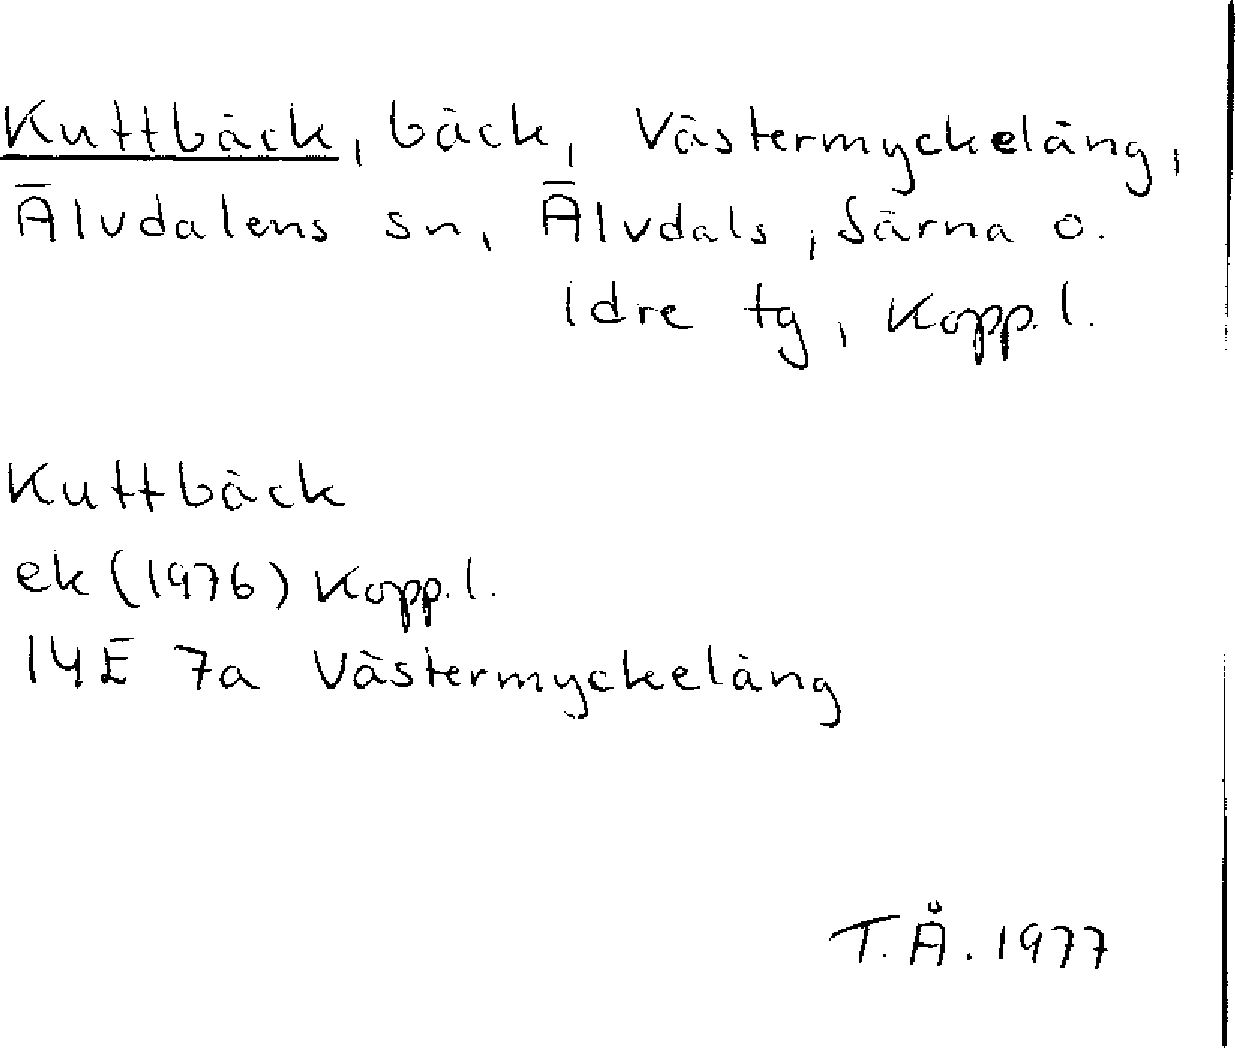 Kuttbäck, bäck, Västermyckeläng,
Älvdalens sn, Älvdals, Särna o.
Idre tg, Kopp.l.
Kuttbäck
ek (1976) Kopp.l.
14E 7a Västermyckeläng
T.Å. 1977